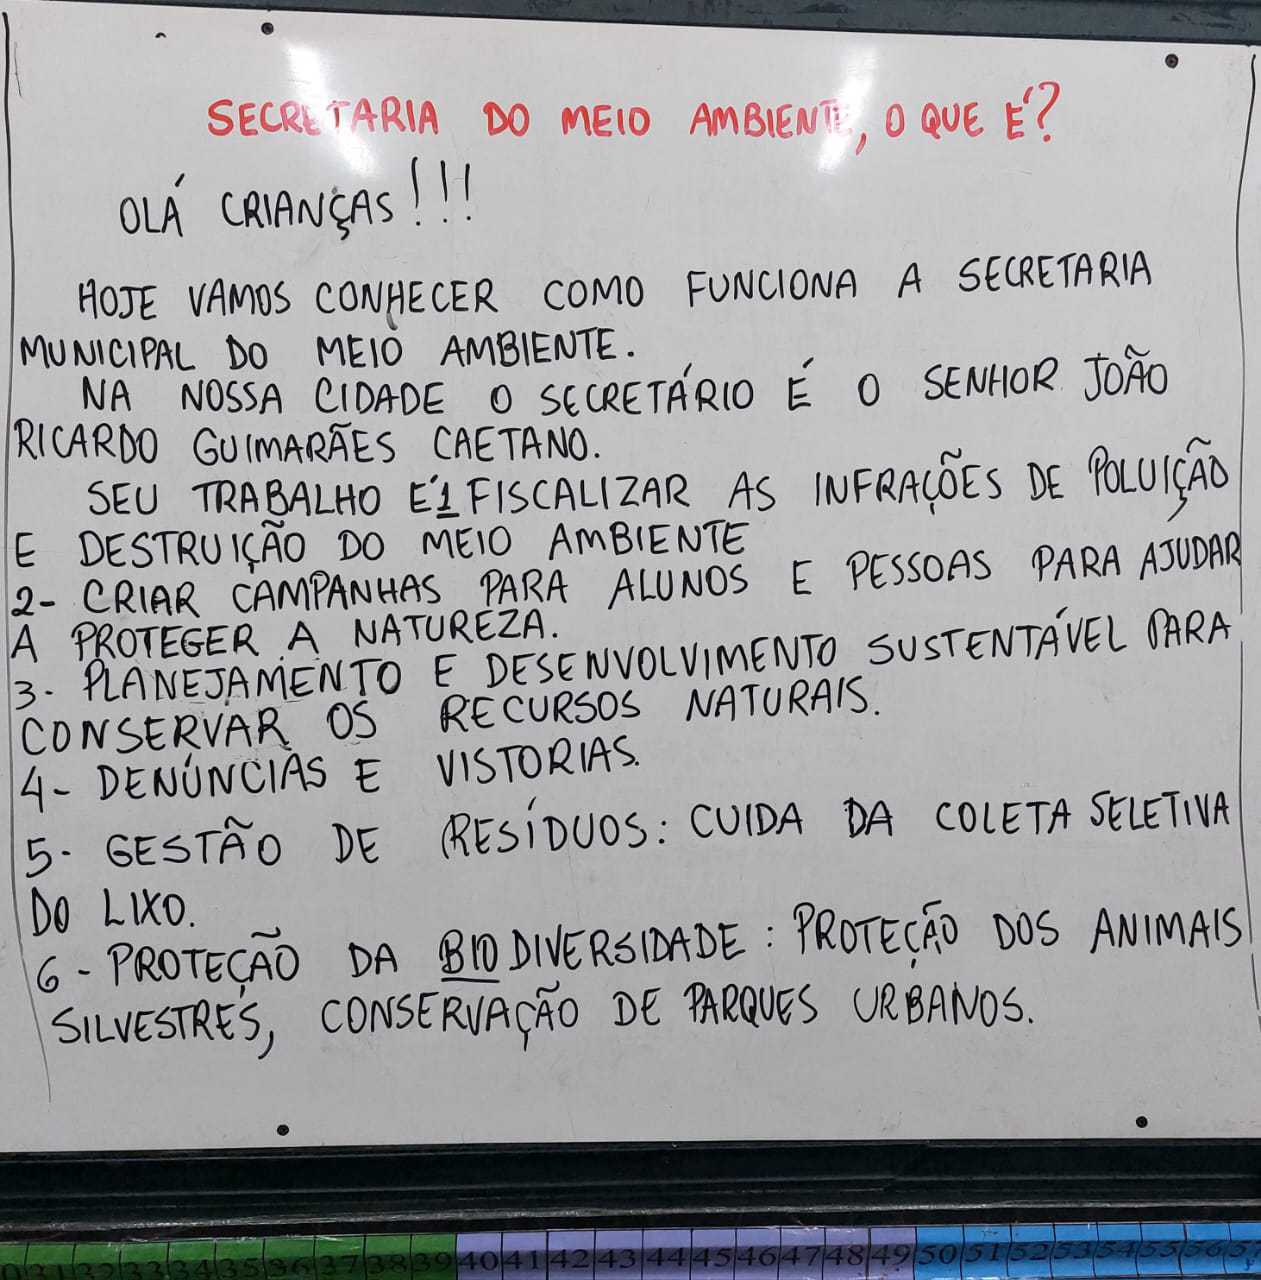 SECRETARIA DO MEIO AMBIENTE, O QUE É?
OLÁ CRIANÇAS!!!
HOJE VAMOS CONHECER COMO FUNCIONA A SECRETARIA
MUNICIPAL DO MEIO AMBIENTE.
NA NOSSA CIDADE O SECRETÁRIO É O SENHOR JOÃO
RICARDO GUIMARÃES CAETANO.
SEU TRABALHO É 1 FISCALIZAR AS INFRAÇÕES DE POLUIÇÃO
E DESTRUIÇÃO DO MEIO AMBIENTE
2- CRIAR CAMPANHAS PARA ALUNOS E PESSOAS PARA AJUDAR
A PROTEGER A NATUREZA.
3- PLANEJAMENTO E DESENVOLVIMENTO SUSTENTÁVEL PARA
CONSERVAR OS RECURSOS NATURAIS.
4- DENÚNCIAS E VISTORIAS.
5- GESTÃO DE RESÍDUOS: CUIDA DA COLETA SELETIVA
DO LIXO.
6- PROTEÇÃO DA BIODIVERSIDADE: PROTEÇÃO DOS ANIMAIS
SILVESTRES, CONSERVAÇÃO DE PARQUES URBANOS.
31 32 33 34 35 36 37 38 39 40 41 42 43 44 45 46 47 48 49 50 51 52 53 54 55 56 57